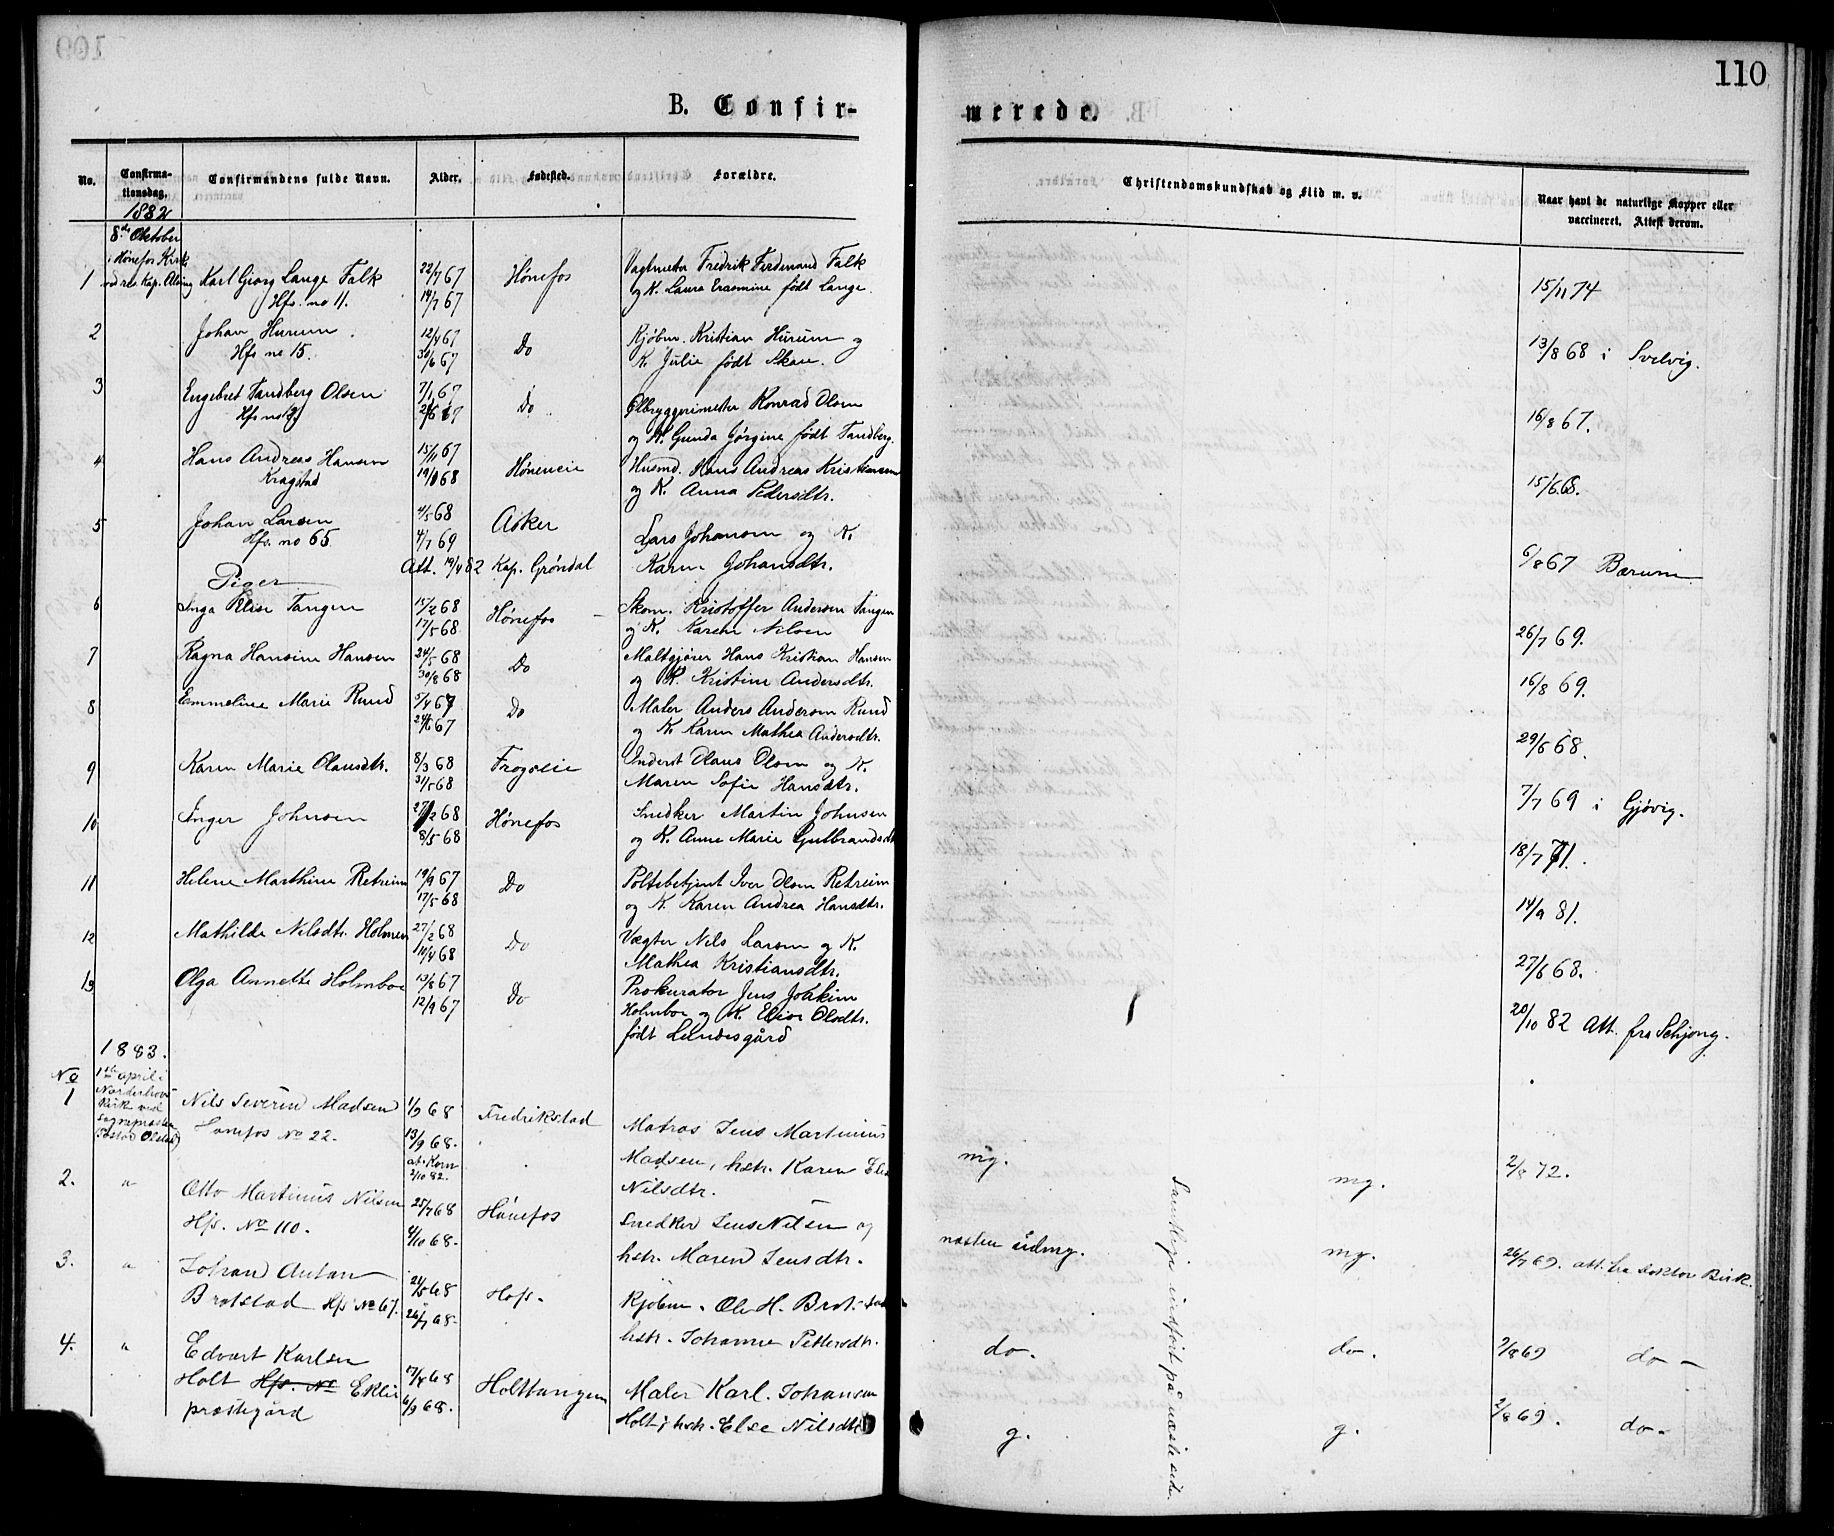 110
B. Confir-
merede.
No.
Confirma-
tionsdag.
Confirmandens fulde Navn.
Alder.
Fødested.
Forældre.
Christendomskundskab og Flid m. v.
Naar havt de naturlige Kopper eller
vaccineret. Attest derom.
1882
8de Oktober
i Hønefos Kirke
ved res. Kap.
1 Karl Georg Lange Falk 22/7 67 Hønefos Vagtmester Fredrik Ferdinand Falk
Hfs. no 11. 14/7 67 og K. Laura Erasmine født Lange. 15/11 74
2 Johan Hurum 12/4 67 Do Kjøbm. Kristian Hurum og
Hfs no 15. 30/6 67 K. Julie født Skau. 13/8 68 i Svelvig.
3 Engebret Tandberg Olsen 7/1 67 Do Ølbryggerimester Konrad Olsen
og K. Gunda Jørgine født Tandberg. 16/8 67.
4 Hans Andreas Hansen 15/11 67 Høneneie Husmd. Hans Andreas Kristiansen
Kragstad 19/1 68 og K. Anna Pedersdtr. 15/6 68.
5 Johan Larsen 4/5 68 Asker Lars Johansen og K.
Hfs. no 65. 4/7 69 Karen Johansdtr.
Att. 19/4 82 Kap. Grøndal 6/8 67 Bærum
Piger
6 Inga Elise Tangen 15/2 68 Hønefos Skom. Kristoffer Andersen Tangen
17/5 68 og K. Karen Nilsen 26/7 69.
7 Ragna Hansine Hansen 24/5 68 Do Maltgjører Hans Kristian Hansen
30/8 68 og K. Kristine Andersdtr. 16/8 69.
8 Emmeline Marie Rund 5/4 67 Do Maler Anders Andersen Rund
67 og K. Karen Mathea Andersdtr. 29/6 68.
9 Karen Marie Olausdtr. 8/3 68 Frogseie Inderst Olaus Olsen og K.
31/5 68 Maren Sofie Hansdtr. 7/7 69 i Gjøvig.
10 Inger Johnsen 27/2 68 Hønefos Snedker Martin Johnsen
8/5 68 og K. Anne Marie Gulbrandsdt 18/7 71.
11 Helene Marthine Retreim 19/9 67 Do Politibetjent Iver Olsen Retreim
17/5 68 og K. Karen Andrea Hansdtr. 14/9 81.
12 Mathilde Nilsdtr. Holmen 27/2 68 Do Vægter Nils Larsen og K.
14/4 68 Mathea Kristiansdtr. 27/6 68.
13 Olga Annette Holmboe 13/6 67 Do Prokurator Jens Joakim
12/9 67 Holmboe og K. Elise Olsdtr.
født Lundesgård 20/10 82 Att. fra Schjong.
1883.
No
1ste april i
Norderhovs
Kirk ved
sogneprasten
1 Nils Severin Madsen 1/9 68 Fredrikstad Matros Jens Martinius
Hønefos No 22. 13/9 68. Madsen, hstr. Karen Elis
at. Korn
2/10 82. Nilsdtr. mg. mg. 2/8 72.
2. " Otto Martinius Nilsen 25/7 68 Hønefos Snedker Jens Nilsen og
Hfs. No 110. 4/10 68. hstr. Maren Jensdtr. næsten udmg. mg. 26/7 69. att. fra doktor Birk.
3. " Johan Anton 24/5 68 Hofs. Kjøbm. Ole H. Brot-stad
Brotstad Hfs No 67. 26/7 68. hstr. Johanne Pettersdtr. do. do. 2/8 69 do -
4. " Edvart Karlsen
Holt Hfs. No Eklie 17/8 68 Holttangen Maler Karl Johansen
præstegård 6/9 68. Holt, hstr. Else Nilsdtr g. g. 2/8 69. do -
indført på næste side.